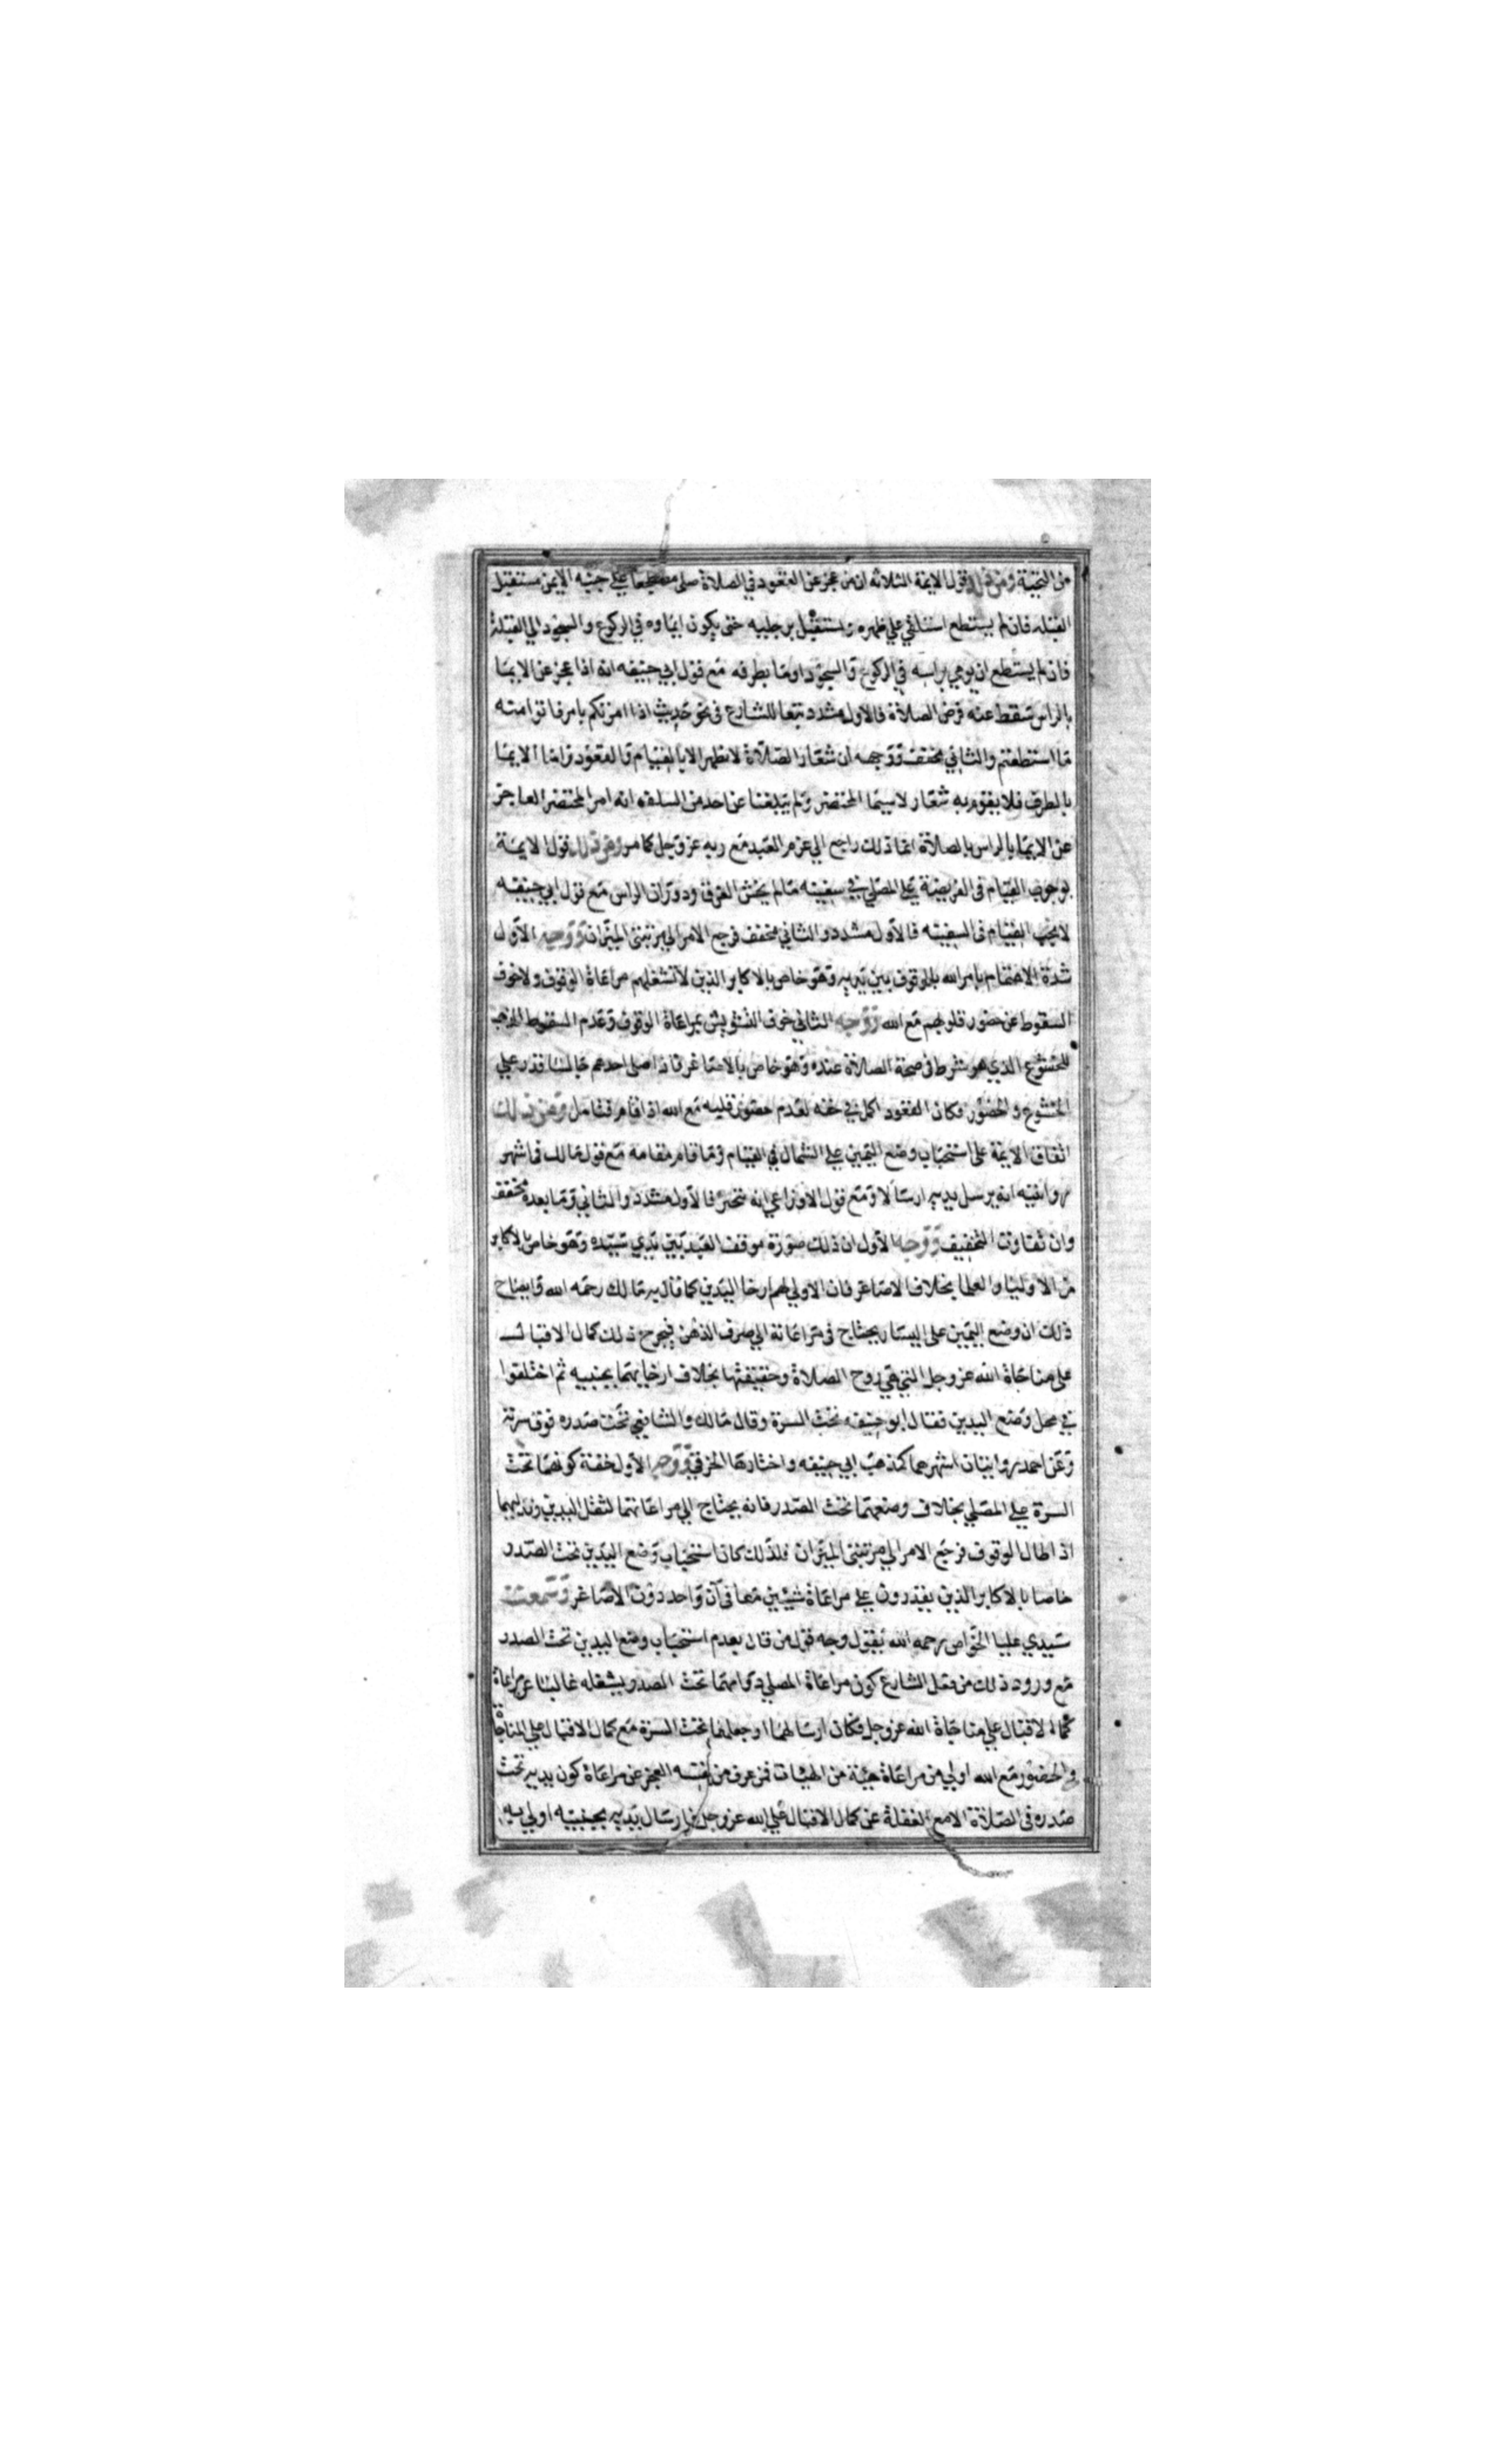 من التحتية ومن ذلك قول الايمة الثلاثه ان من عجز عن القعود في الصلاة صلى مضطجعا على جنبه الايمن مستقبل
القبله فان لم يستطع استلقي علي ظهره ويستقبل برجليه حتى يكون ايماوه في الركوع والسجود الي القبلة
فان لم يستطع ان يومي براسه في الركوع والسجود اوما بطرفه مع قول ابي حنيفه انه اذا عجز عن الايما
بالراس سقط عنه فرض الصلاة فالاول مشدد تبعا للشارع في نحو حديث اذا امرتكم بامر فاتوا منه
ما استطعتم والثاني مخفف ووجهه ان شعار الصلاة لا يظهر الا بالقيام والقعود واما الايما
بالطرف فلا يقوم به شعار لاسيما المحتضر ولم يبلغنا عن احد من السلف انه امر المحتضر العاجز
عن الايما بالراس بالصلاة انما ذلك راجع الي عزم العبد مع ربه عز وجل كما مر ومن ذلك قول الايمة
بوجوب القيام في الفريضة على المصلي في سفينه مالم يخش الغرق ودوران الراس مع قول ابي حنيفه
لا يجب القيام في السفينه فالاول مشدد والثاني مخفف فرجع الامر الي مرتبتي الميزان ووجه الاول
شدة الاهتمام بامر الله بالوقوف بين يديه وهو خاص بالاكابر الذين لا تشغلهم مراعاة الوقوف ولا خوف
السقوط عن حضور قلوبهم مع الله ووجه الثاني خوف التشويش بمراعاة الوقوف وعدم السقوط المذهب
للخشوع الذي هو شرط في صحة الصلاة عنده وهو خاص بالاصاغر فاذا صلى احدهم جالسا قدر علي
الخشوع والحضور فكان القعود اكمل في حقه لعدم حضور قلبه مع الله اذا قام فتامل ومن ذلك
اتفاق الايمة على استحباب وضع اليمين على الشمال في القيام وما قام مقامه مع قول مالك في اشهر
روايتيه انه يرسل يديه ارسالا ومع قول الاوزاعي انه يتخير فالاول مشدد والثاني وما بعده مخفف
وان تفاوت التخفيف ووجه الاول ان ذلك صورة موقف العبد بين يدي سيده وهو خاص بالاكابر
من الاوليا والعلما بخلاف الاصاغر فان الاولي لهم ارخا اليدين كما قال به مالك رحمه الله وايضاح
ذلك ان وضع اليمين على اليسار يحتاج في مراعاته الي صرف الذهن فيخرج ذلك كمال الاقبال
على مناجاة الله عز وجل التي هي روح الصلاة وحقيقتها بخلاف ارخايهما بجنبيه ثم اختلفوا
في محل وضع اليدين فقال ابو حنيفه تحت السرة وقال مالك والشافعي تحت صدره فوق سرته
وعن احمد روايتان اشهرهما كمذهب ابي حنيفه واختارها الخرقي ووجه الاول خفة كونهما تحت
السرة على المصلي بخلاف وضعهما تحت الصدر فانه يحتاج الي مراعاتهما لثقل اليدين وتدليهما
اذا طال الوقوف فرجع الامر الي مرتبتي الميزان فلذلك كان استحباب وضع اليدين تحت الصدر
خاصا بالاكابر الذين يقدرون على مراعاة شيئين معا في آن واحد دون الاصاغر وسمعت
سيدي عليا الخواص رحمه الله يقول وجه قول من قال بعدم استحباب وضع اليدين تحت الصدر
مع ورود ذلك من فعل الشارع كون مراعاة المصلي دوامهما تحت الصدر يشغله غالبا عن مراعاة
كمال الاقبال علي مناجاة الله عز وجل فكان ارسالهما او جعلهما تحت السرة مع كمال الاقبال علي المناجاة
والحضور مع الله اولي من مراعاة هيئة من الهيئات فمن عرف من نفسه العجز عن مراعاة كون يديه تحت
صدره في الصلاة الا مع الغفلة عن كمال الاقبال علي الله عز وجل فارسال يديه بجنبيه اولي به